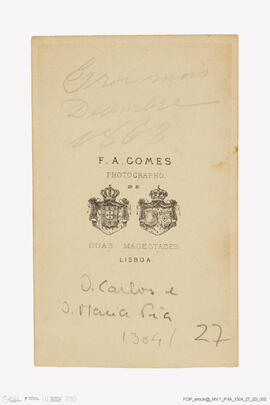 Decembre
1863
F. A. GOMES
PHOTOGRAPHO.
DE
SUAS MAGESTADES
LISBOA
D. Carlos e
D. Maria Pia
1304/
27